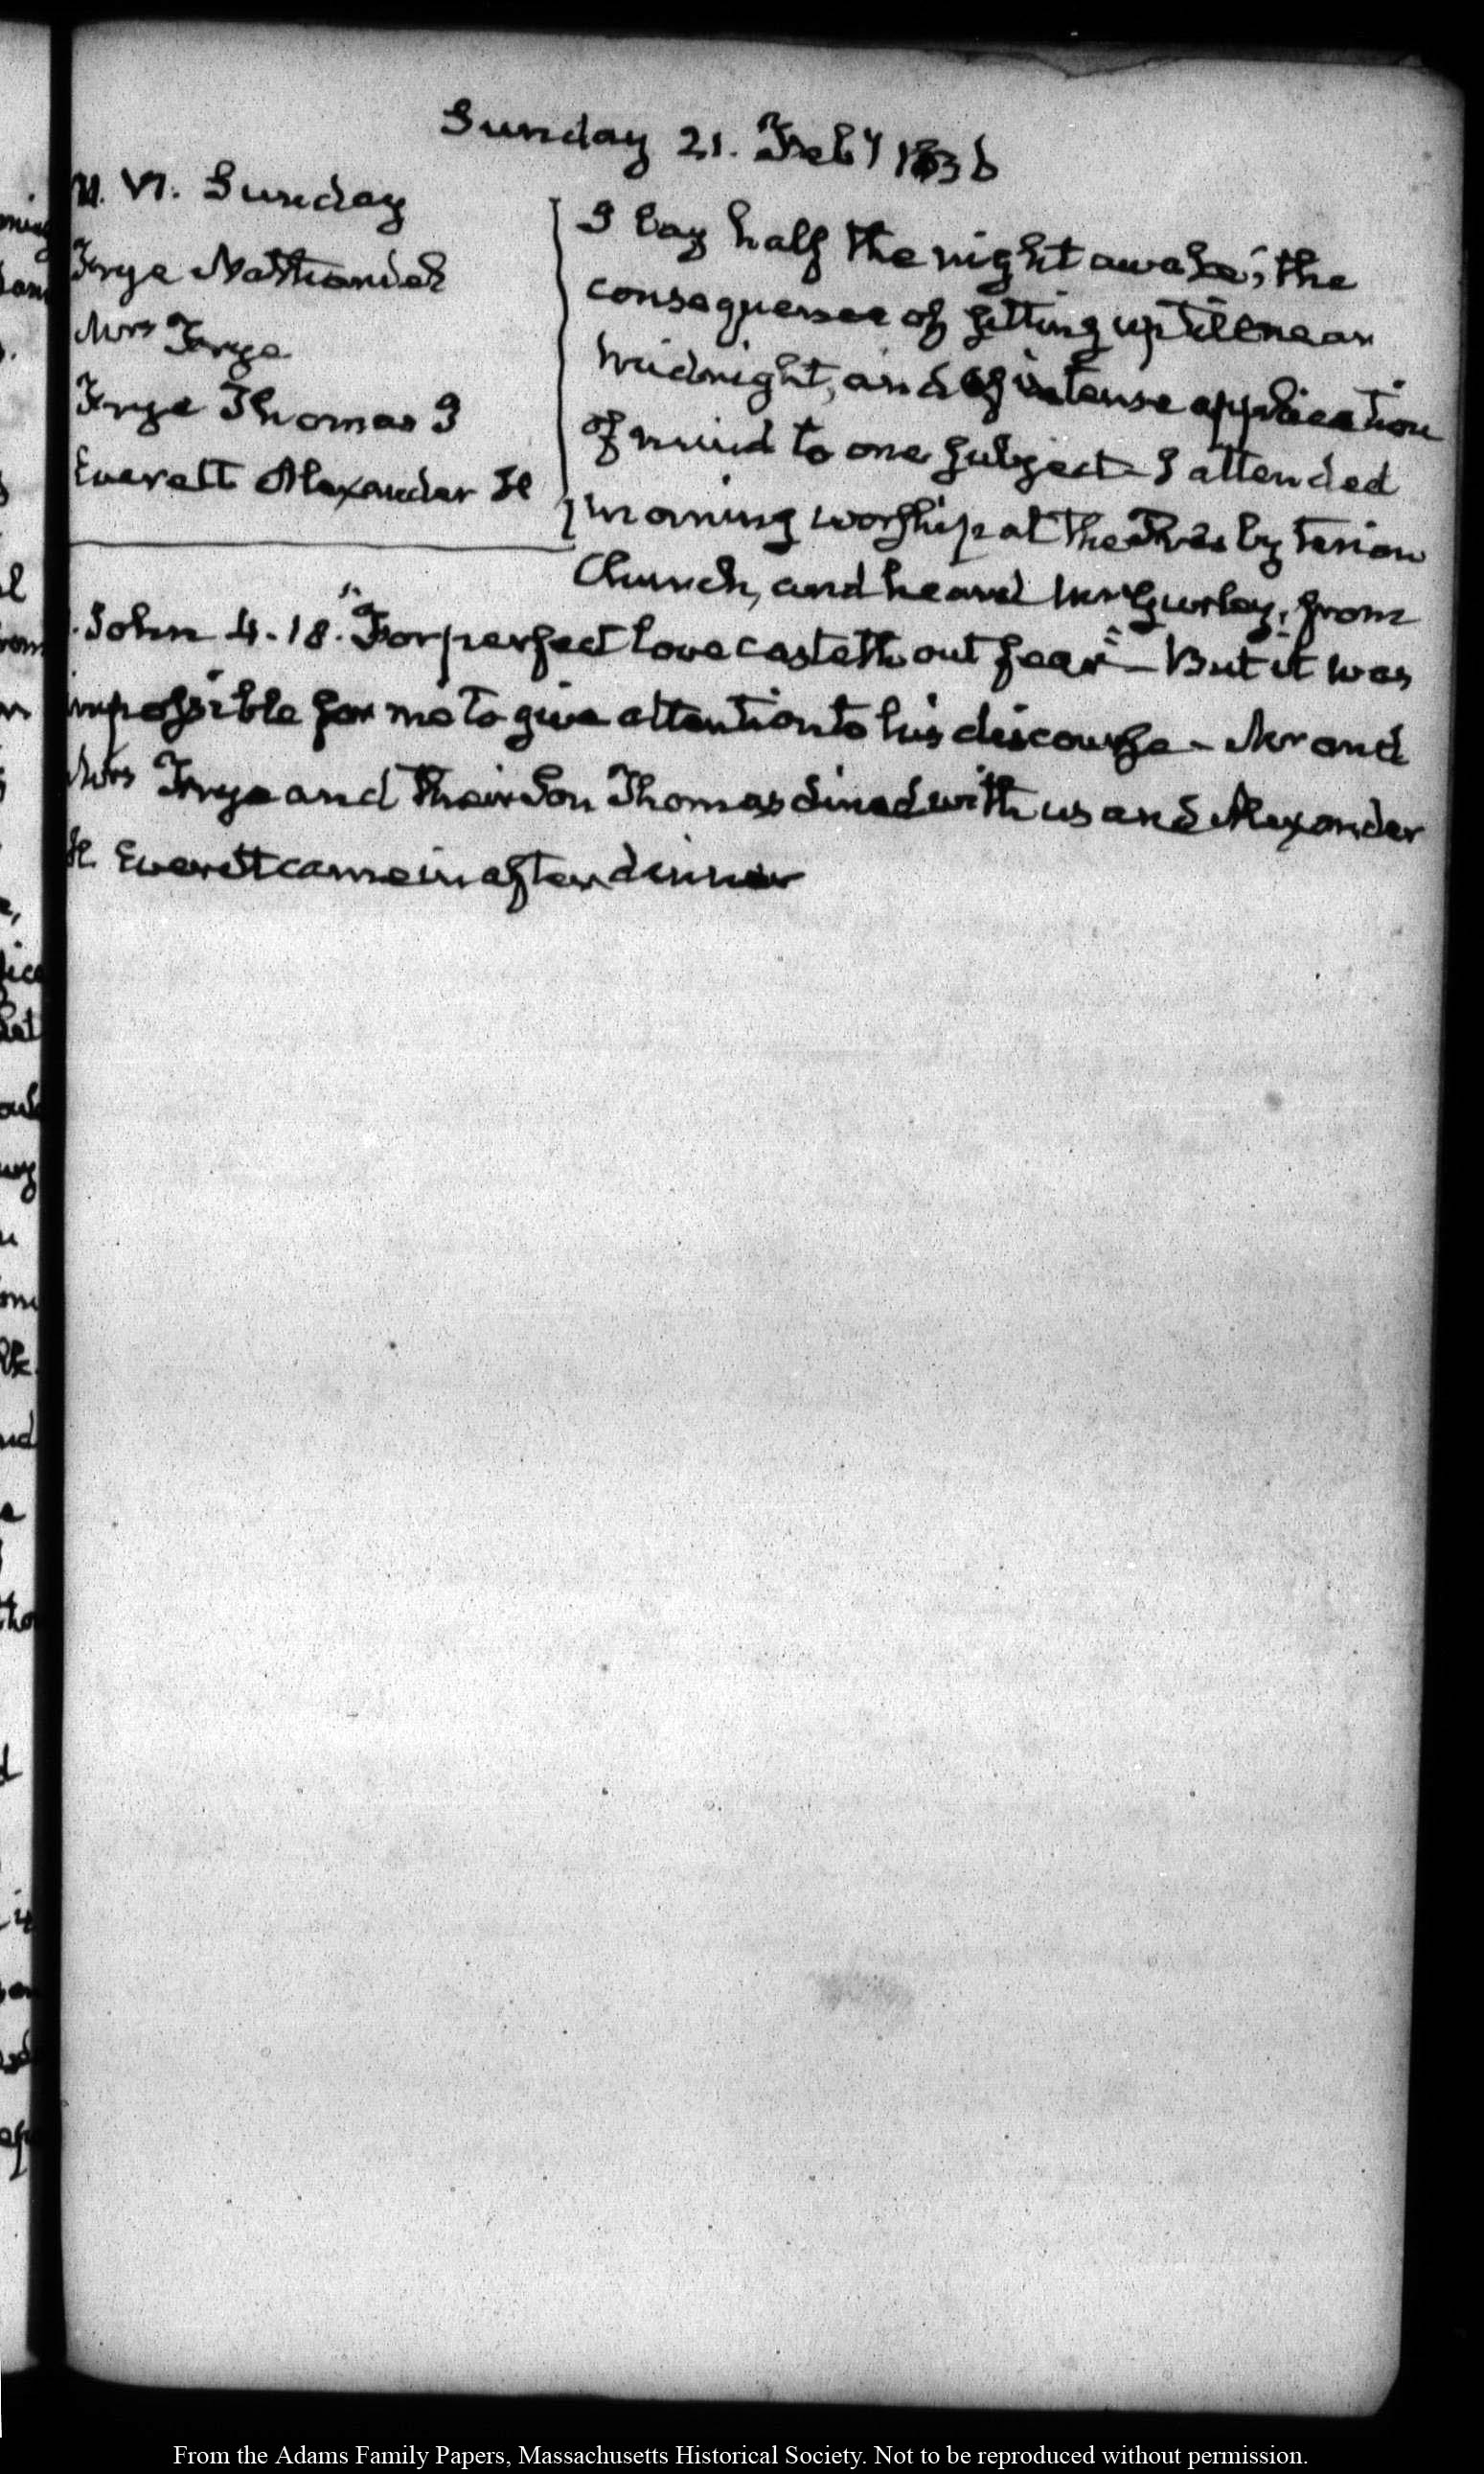 Sunday 21. Feby 1836
VI. Sunday
Frye Nathaniel
Mrs Frye
Frye Thomas J
Everett Alexander H
I lay half the night awake; the
consequence of sitting up till near
midnight, and of intense application
of mind to one subject I attended
morning worship at the Presbyterian
Church, and heard Mr Gurley, from
1. John 4.18. "For perfect love casteth out fear" — But it was
impossible for me to give attention to his discourse — Mr and
Mrs Frye and their Son Thomas dined with us and Alexander
H. Everett came in after dinner
From the Adams Family Papers, Massachusetts Historical Society. Not to be reproduced without permission.